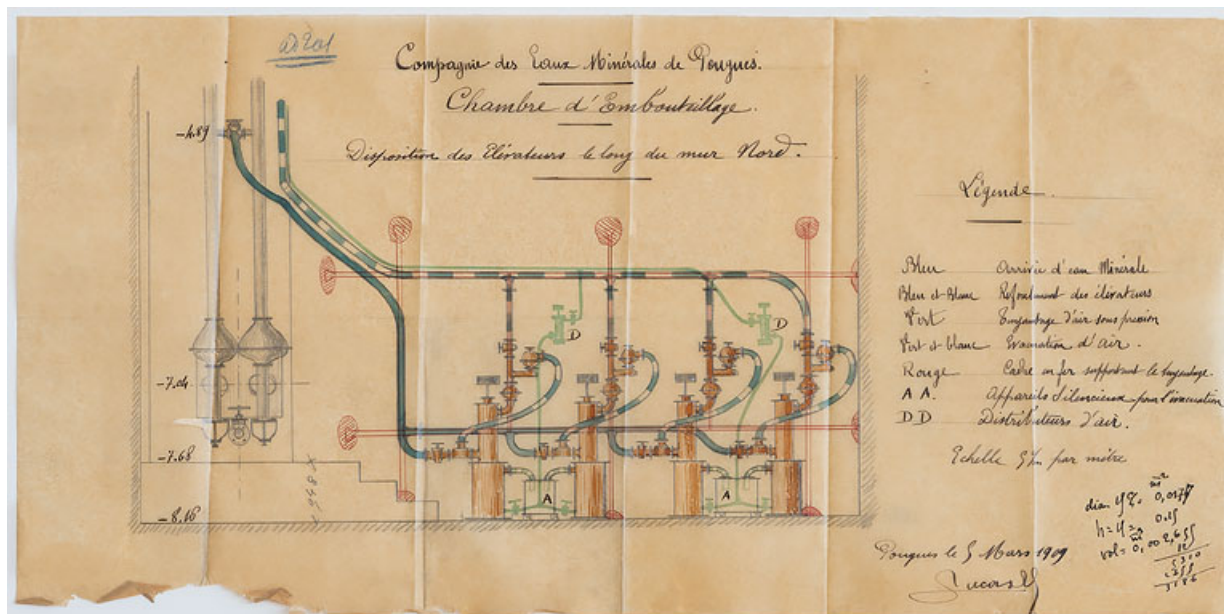 Compagnie des Eaux Minérales de Pougues.
Chambre d'Embouteillage.
Disposition des Elévateurs le long du mur Nord.
-4.89
-7.04
-7.68
-8.16
D
D
A
A
Légende.
Bleu Arrivée d'eau Minérale
Bleu et Blanc Refoulement des élévateurs
Vert Tuyautage d'air sous pression
Vert et blanc Evacuation d'air.
Rouge Cadre en fer supportant le tuyautage.
A A. Appareils Silencieux pour l'évacuation
D D Distributeurs d'air.
Echelle 5% par mètre
Pougues le 5 Mars 1909